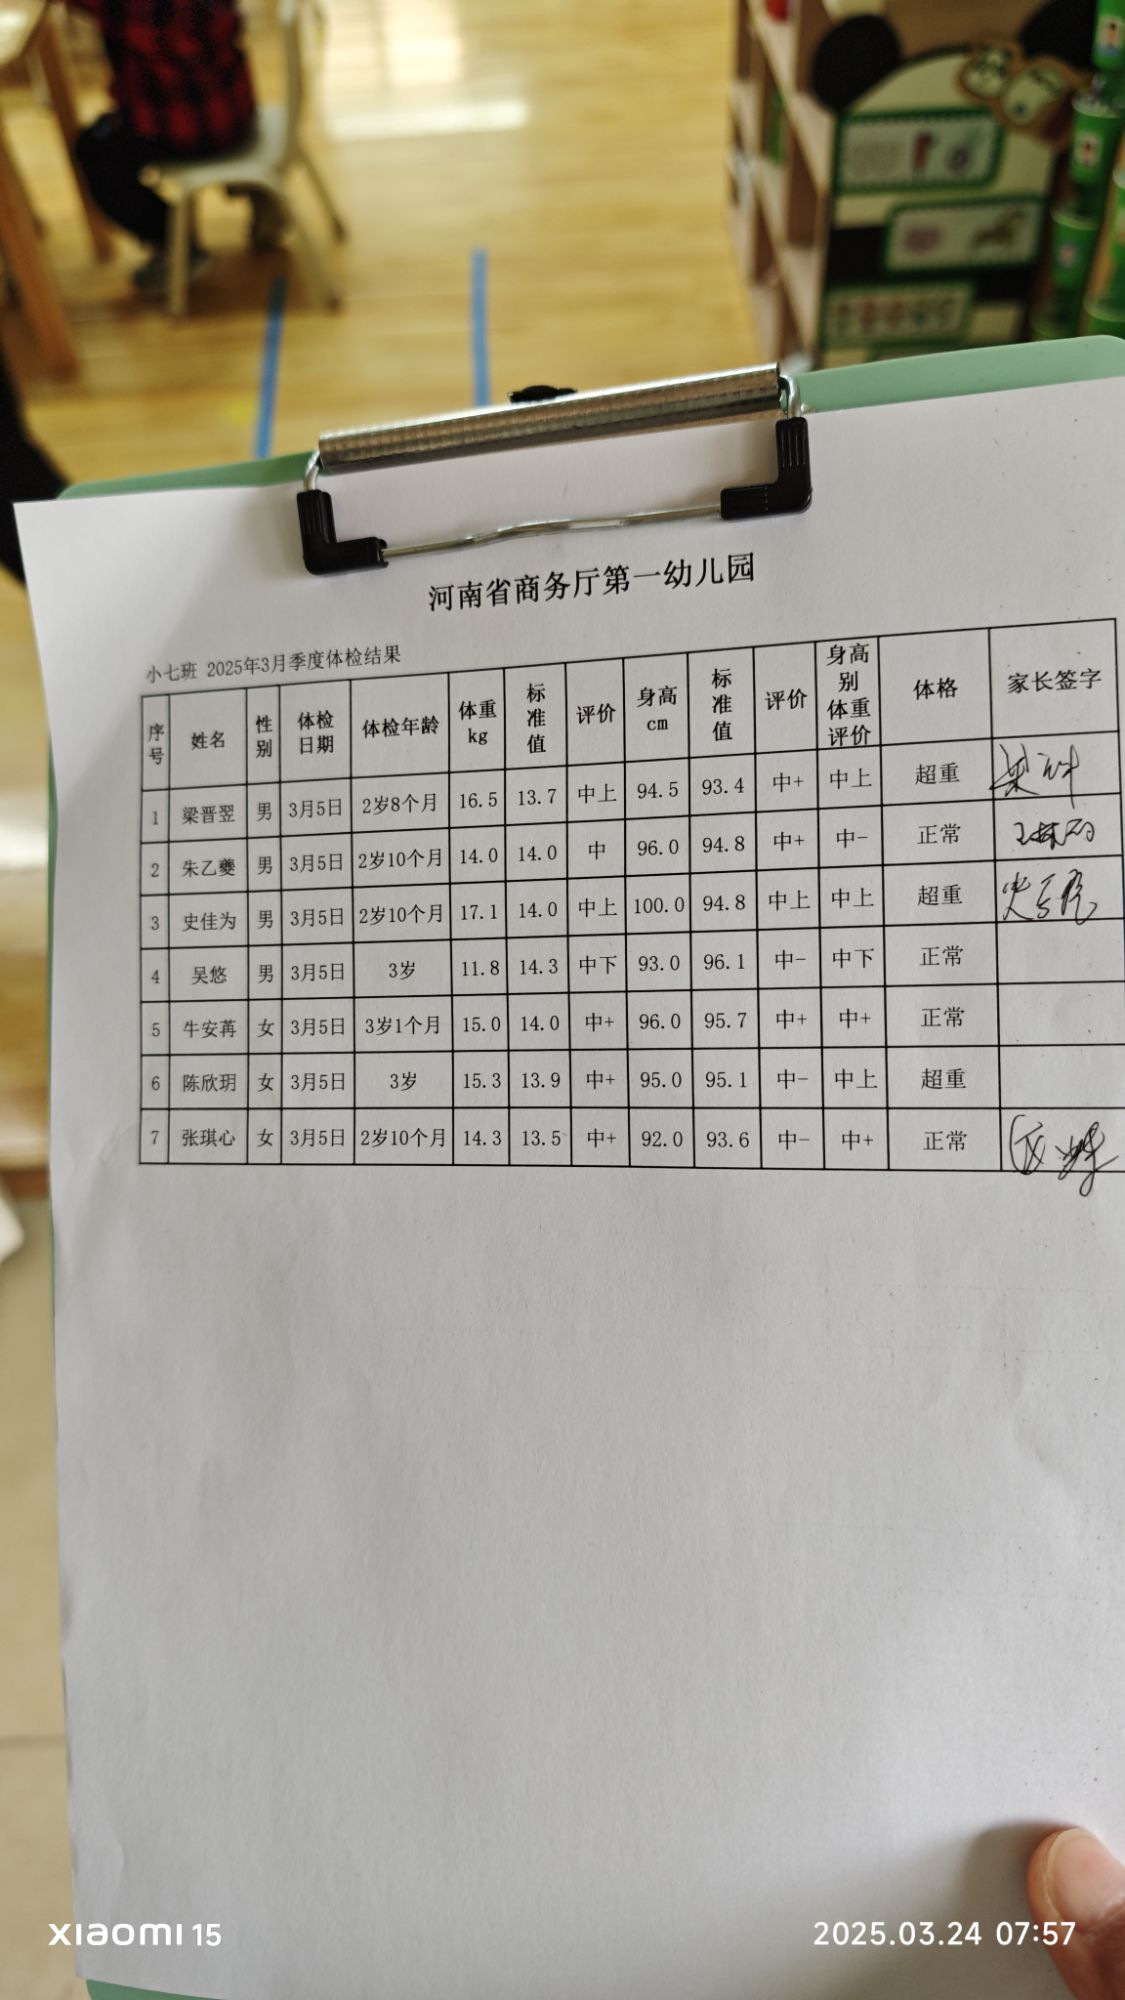 河南省商务厅第一幼儿园
小七班 2025年3月季度体检结果
序号 姓名 性别 体检日期 体检年龄 体重kg 标准值 评价 身高cm 标准值 评价 身高别体重评价 体格 家长签字
1 梁晋翌 男 3月5日 2岁8个月 16.5 13.7 中上 94.5 93.4 中+ 中上 超重
2 朱乙夔 男 3月5日 2岁10个月 14.0 14.0 中 96.0 94.8 中+ 中- 正常
3 史佳为 男 3月5日 2岁10个月 17.1 14.0 中上 100.0 94.8 中上 中上 超重
4 吴悠 男 3月5日 3岁 11.8 14.3 中下 93.0 96.1 中- 中下 正常
5 牛安苒 女 3月5日 3岁1个月 15.0 14.0 中+ 96.0 95.7 中+ 中+ 正常
6 陈欣玥 女 3月5日 3岁 15.3 13.9 中+ 95.0 95.1 中- 中上 超重
7 张琪心 女 3月5日 2岁10个月 14.3 13.5 中+ 92.0 93.6 中- 中+ 正常
xiaomi 15
2025.03.24 07:57